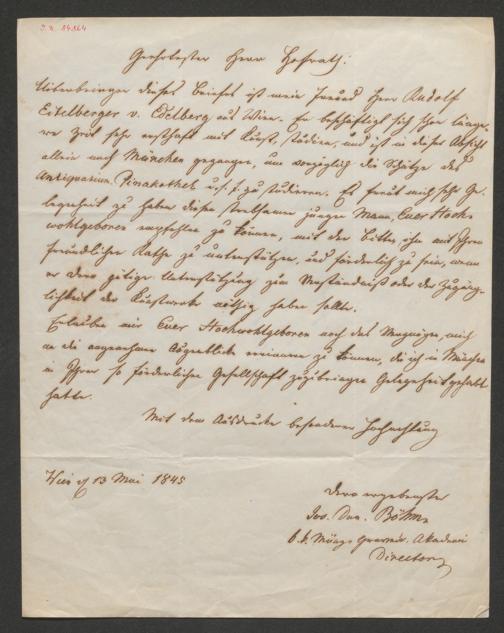 I.N. 84864
Geehrtester Herr Hofrath!
Ueberbringer dieses Briefes ist mein Freund Herr Rudolf
Eitelberger v. Edelberg aus Wien. Er beschäftigt sich schon länge-
re Zeit sehr ernsthaft mit Kunst, Studien, und ist in dieser Absicht
allein nach München gegangen, um vorzüglich die Schätze des
Antiquarium, Pinakothek u.s.f. zu studieren. Es freut mich sehr Ge-
legenheit zu haben diesen strebsamen jungen Mann, Euer Hoch-
wohlgeboren empfehlen zu können, mit der Bitte, ihn mit Ihrem
freundlichen Rathe zu unterstützen, und förderlich zu sein, wenn
er dero gütige Unterstützung zum Verständniß oder der Zugäng-
lichkeit der Kunstwerke nöthig haben sollte.
Erlauben mir Euer Hochwohlgeboren noch das Vergnügen, mich
an die angenehmen Augenblicke erinnern zu können, die ich in München
in Ihrer so förderlichen Gesellschaft zuzubringen Gelegenheit gehabt
hatte.
Mit dem Ausdrucke besonderer Hochachtung
Wien 13 Mai 1845
dero ergebenster
Jos. Dan. Böhm
k.k. Münz Graveur. Akademie
Director